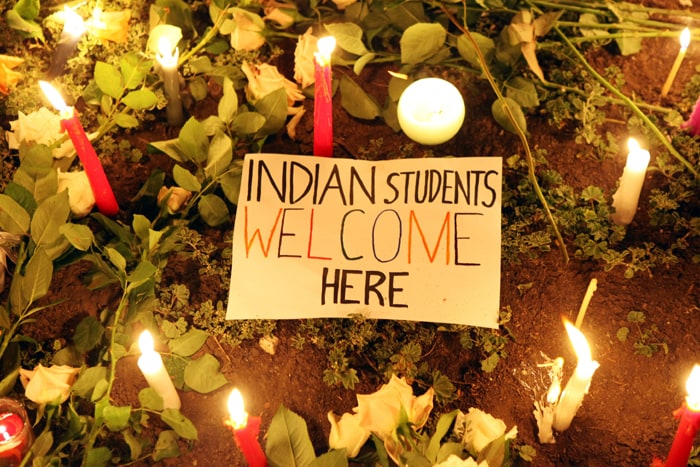 INDIAN STUDENTS
WELCOME
HERE